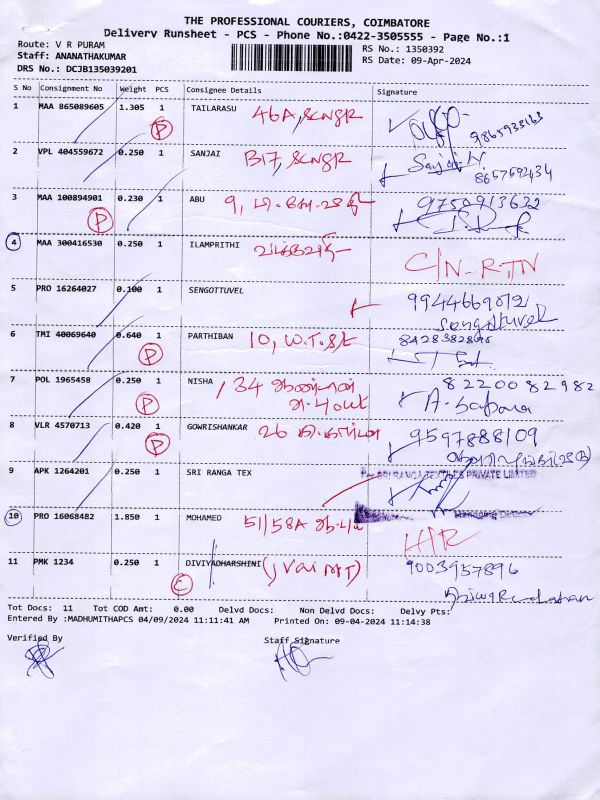 THE PROFESSIONAL COURIERS, COIMBATORE
Delivery Runsheet - PCS - Phone No.:0422-3505555 - Page No.:1
Route: V R PURAM
Staff: ANANATHAKUMAR
DRS No.: DCJB135039201
RS No.: 1350392
RS Date: 09-Apr-2024
S No Consignment No Weight PCS Consignee Details Signature
1 MAA 865089605 1.305 1 TAILARASU 46A, SCNGR
P
2 VPL 404559672 0.250 1 SANJAI B17, SCNGR Sanjay N
8657592434
3 MAA 100894901 0.230 1 ABU 9, 9750913632
P
4 MAA 300416530 0.250 1 ILAMPRITHI
C/N-RTN
5 PRO 16264027 0.100 1 SENGOTTUVEL 9944669012
Sengottuvel
6 TMI 40069640 0.640 1 PARTHIBAN 10, W.T.St
P
7 POL 1965458 0.250 1 NISHA 34 8220082982
P
8 VLR 4570713 0.420 1 GOWRISHANKAR 26 9597888109
P
9 APK 1264201 0.250 1 SRI RANGA TEX
For SRI RANGA TEXTILES PRIVATE LIMITED
10 PRO 16068482 1.850 1 MOHAMED 51/58A
H/R
11 PMK 1234 0.250 1 DIVIYADHARSHINI 9003957896
C
Tot Docs: 11 Tot COD Amt: 0.00 Delvd Docs: Non Delvd Docs: Delvy Pts:
Entered By :MADHUMITHAPCS 04/09/2024 11:11:41 AM Printed On: 09-04-2024 11:14:38
Verified By Staff Signature